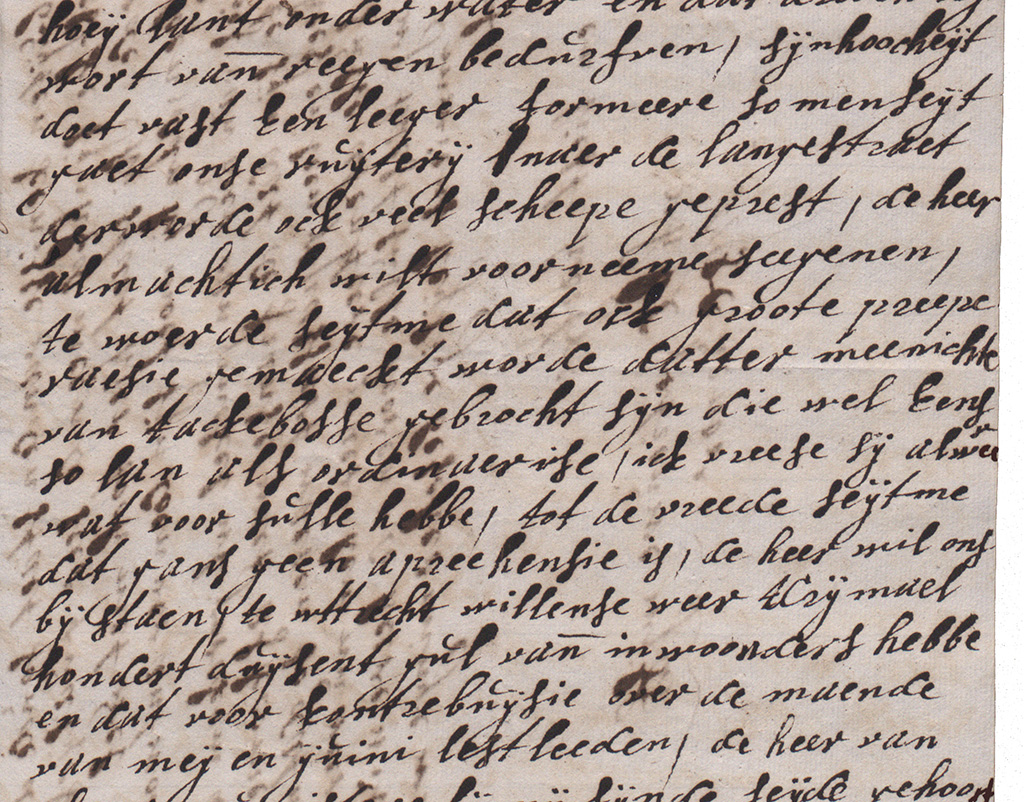 hoeÿ lant onder water en dat
wort van reegen bedurfven, sijnhoocheÿt
doet vast een leeger formeere so men seÿt
gaet onse ruÿterÿ naer de langestraet
derworde ock veel scheepe geprest, de heer
almachtich wilt voorneeme seegenen,
te woerde seÿtme dat ock groote preepe
raesie gemaeckt worde datter meenichte
van tackebosse gebrocht sÿn die wel eens
so lan als ordinaerise, ick vreese sÿ alwee
wat voor sulle hebbe, tot de vreede seÿtme
dat gans geen apreehensie is, de heer wil ons
bÿ staen, te uttrecht willense weer drÿmael
hondert duÿsent gul van inwoonders hebbe
en dat voor kontrebuÿsie over de maende
van meÿ en juini lestleeden, de heer van
sÿnde seÿde gehoort